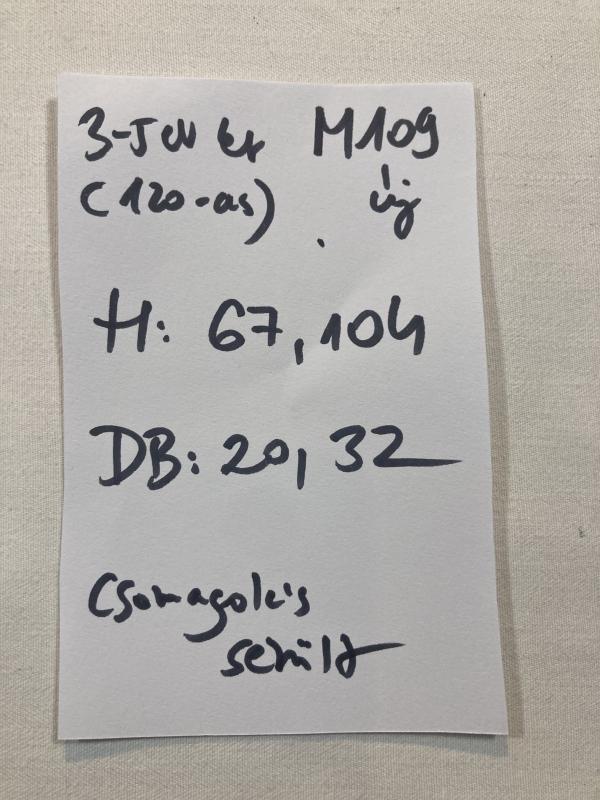 3-JCW M109
(120-as) új
H: 67, 104
DB: 20, 32
Csomagolás
sérült